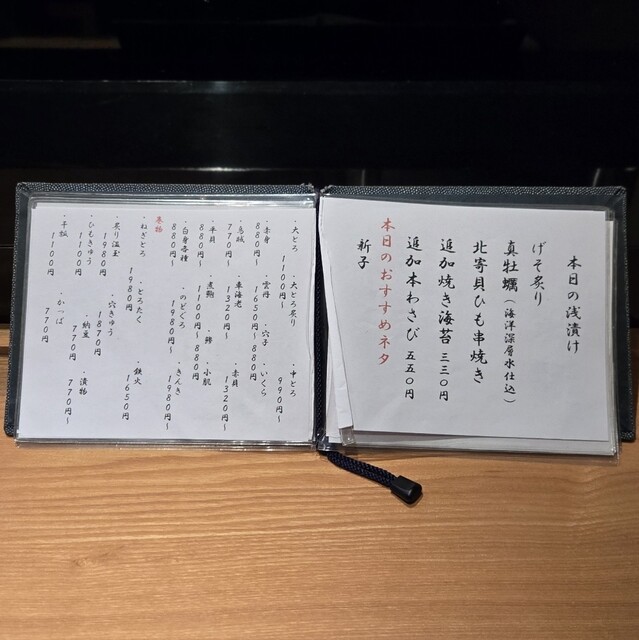 本日の浅漬け
げそ炙り
真牡蠣（海洋深層水仕込）
北寄貝ひも串焼き
追加焼き海苔 三三〇円
追加本わさび 五五〇円
本日のおすすめネタ
新子
・大とろ ・大とろ炙り ・中とろ
1100円〜 990円〜
・赤身 ・雲丹 ・穴子 ・いくら
880円〜 1650円〜 880円〜
・車海老 ・赤貝
770円〜 1320円〜 1320円〜
・平貝 ・煮鮑 ・小肌
880円〜 1100円〜 880円〜
・白身各種 ・のどぐろ ・きんき
880円〜 1980円〜 1980円〜
巻物
・ねぎとろ ・とろたく ・鉄火
1980円 1650円
・炙り温玉 ・穴きゅう
1980円 1870円
・ひもきゅう ・納豆 ・漬物
1100円 770円 770円
・干瓢 ・かっぱ
1100円 770円